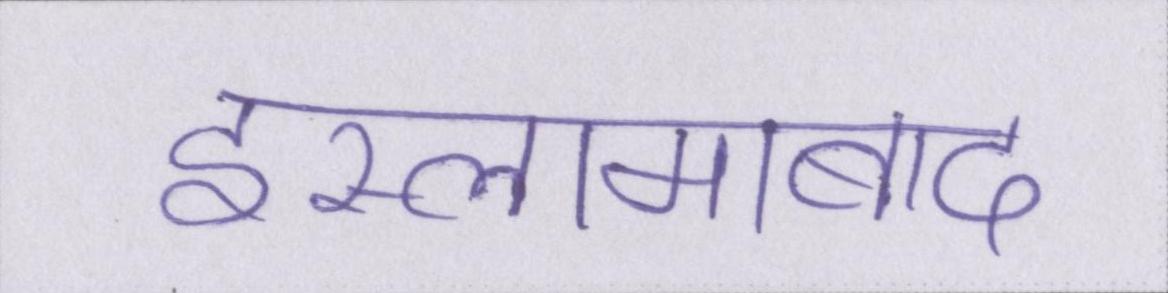 इस्लामाबाद